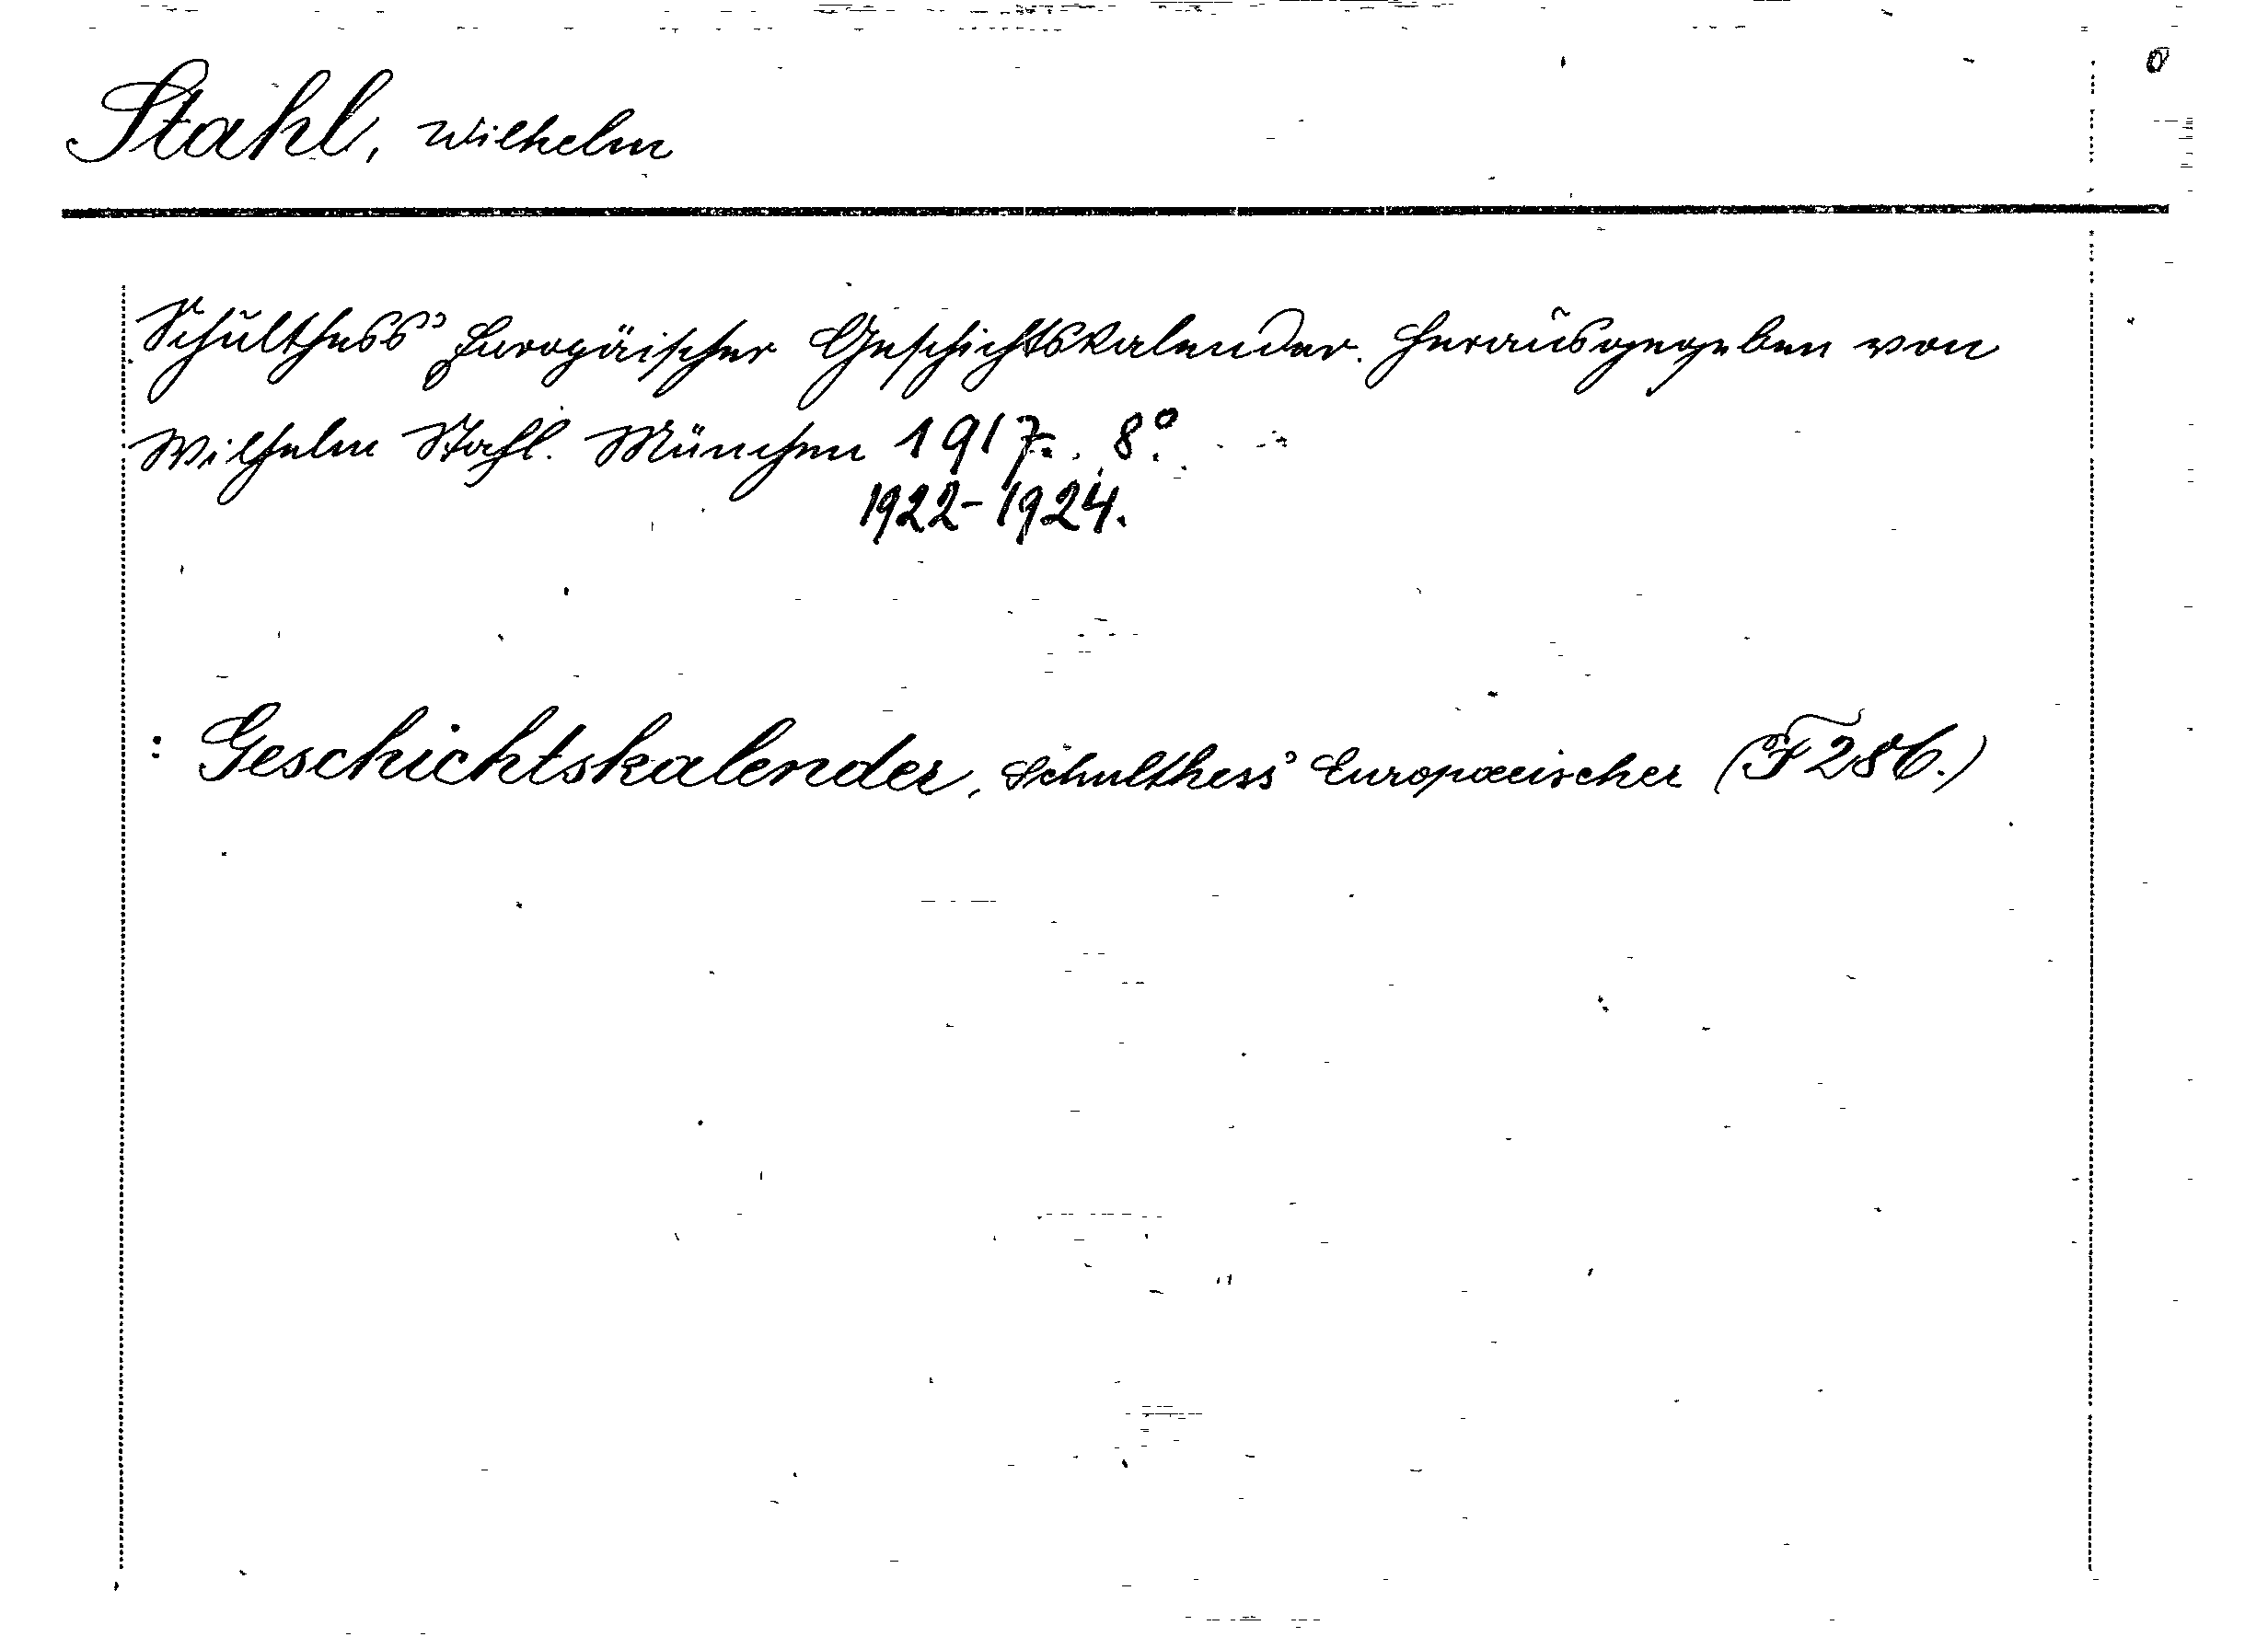 Stahl, Wilhelm
Schulthess' Europäischer Geschichtskalender. Herausgegeben von
Wilhelm Stahl. München 1917-. 8°.
1922-1924.
: Geschichtskalender, Schulthess' Europaeischer (F 286.)